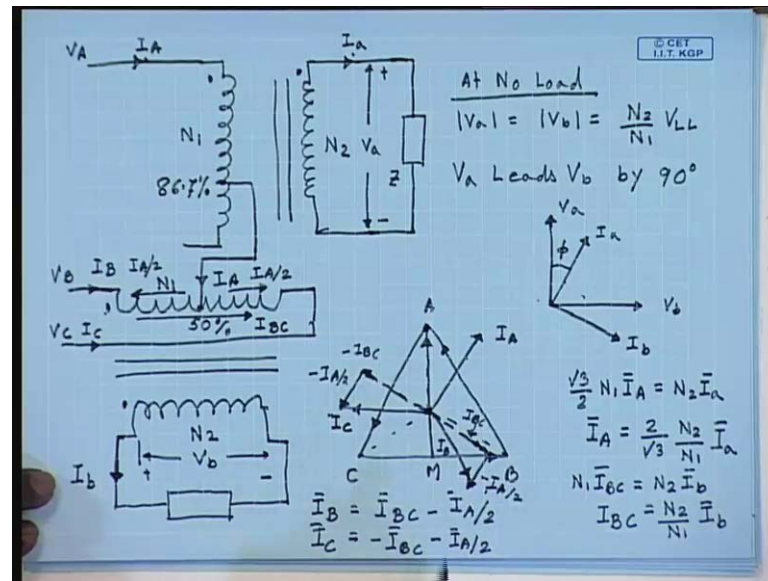 © CET
I.I.T. KGP
VA IA
N1
86.7%
Ia
+
N2 Va
Z
-
At No Load
|Va| = |Vb| = N2/N1 VLL
Va Leads Vb by 90°
Va
Ia
φ
Vb
Ib
VB IB IA/2 N1 IA IA/2
VC IC 50% IBC
N2
Ib + Vb -
A
IA
-IBC
-IA/2
IC
IBC
IB
C M B
-IA/2
ĪB = ĪBC - ĪA/2
ĪC = -ĪBC - ĪA/2
√3/2 N1 ĪA = N2 Īa
ĪA = 2/√3 N2/N1 Īa
N1 ĪBC = N2 Īb
IBC = N2/N1 Īb